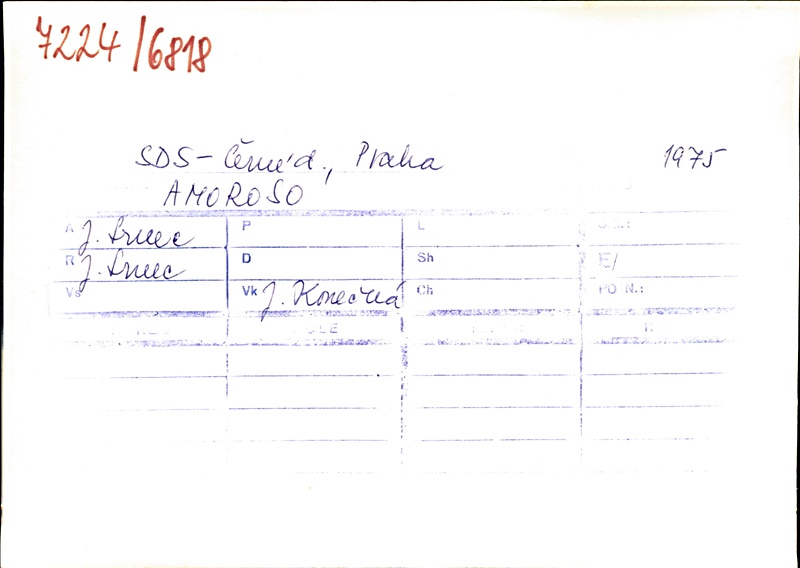 7224/6818
SDS - Černé d., Praha 1975
AMOROSO
A J. Srnec P L
R J. Srnec D Sh E/
Vs Vk J. Konečná Ch PO N.: